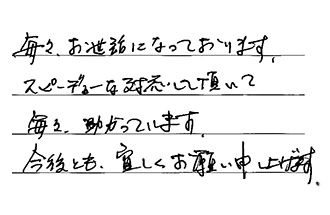 毎々、お世話になっております。
スピーディーな対応して頂いて
毎々、助かっています。
今後とも、宜しくお願い申し上げます。